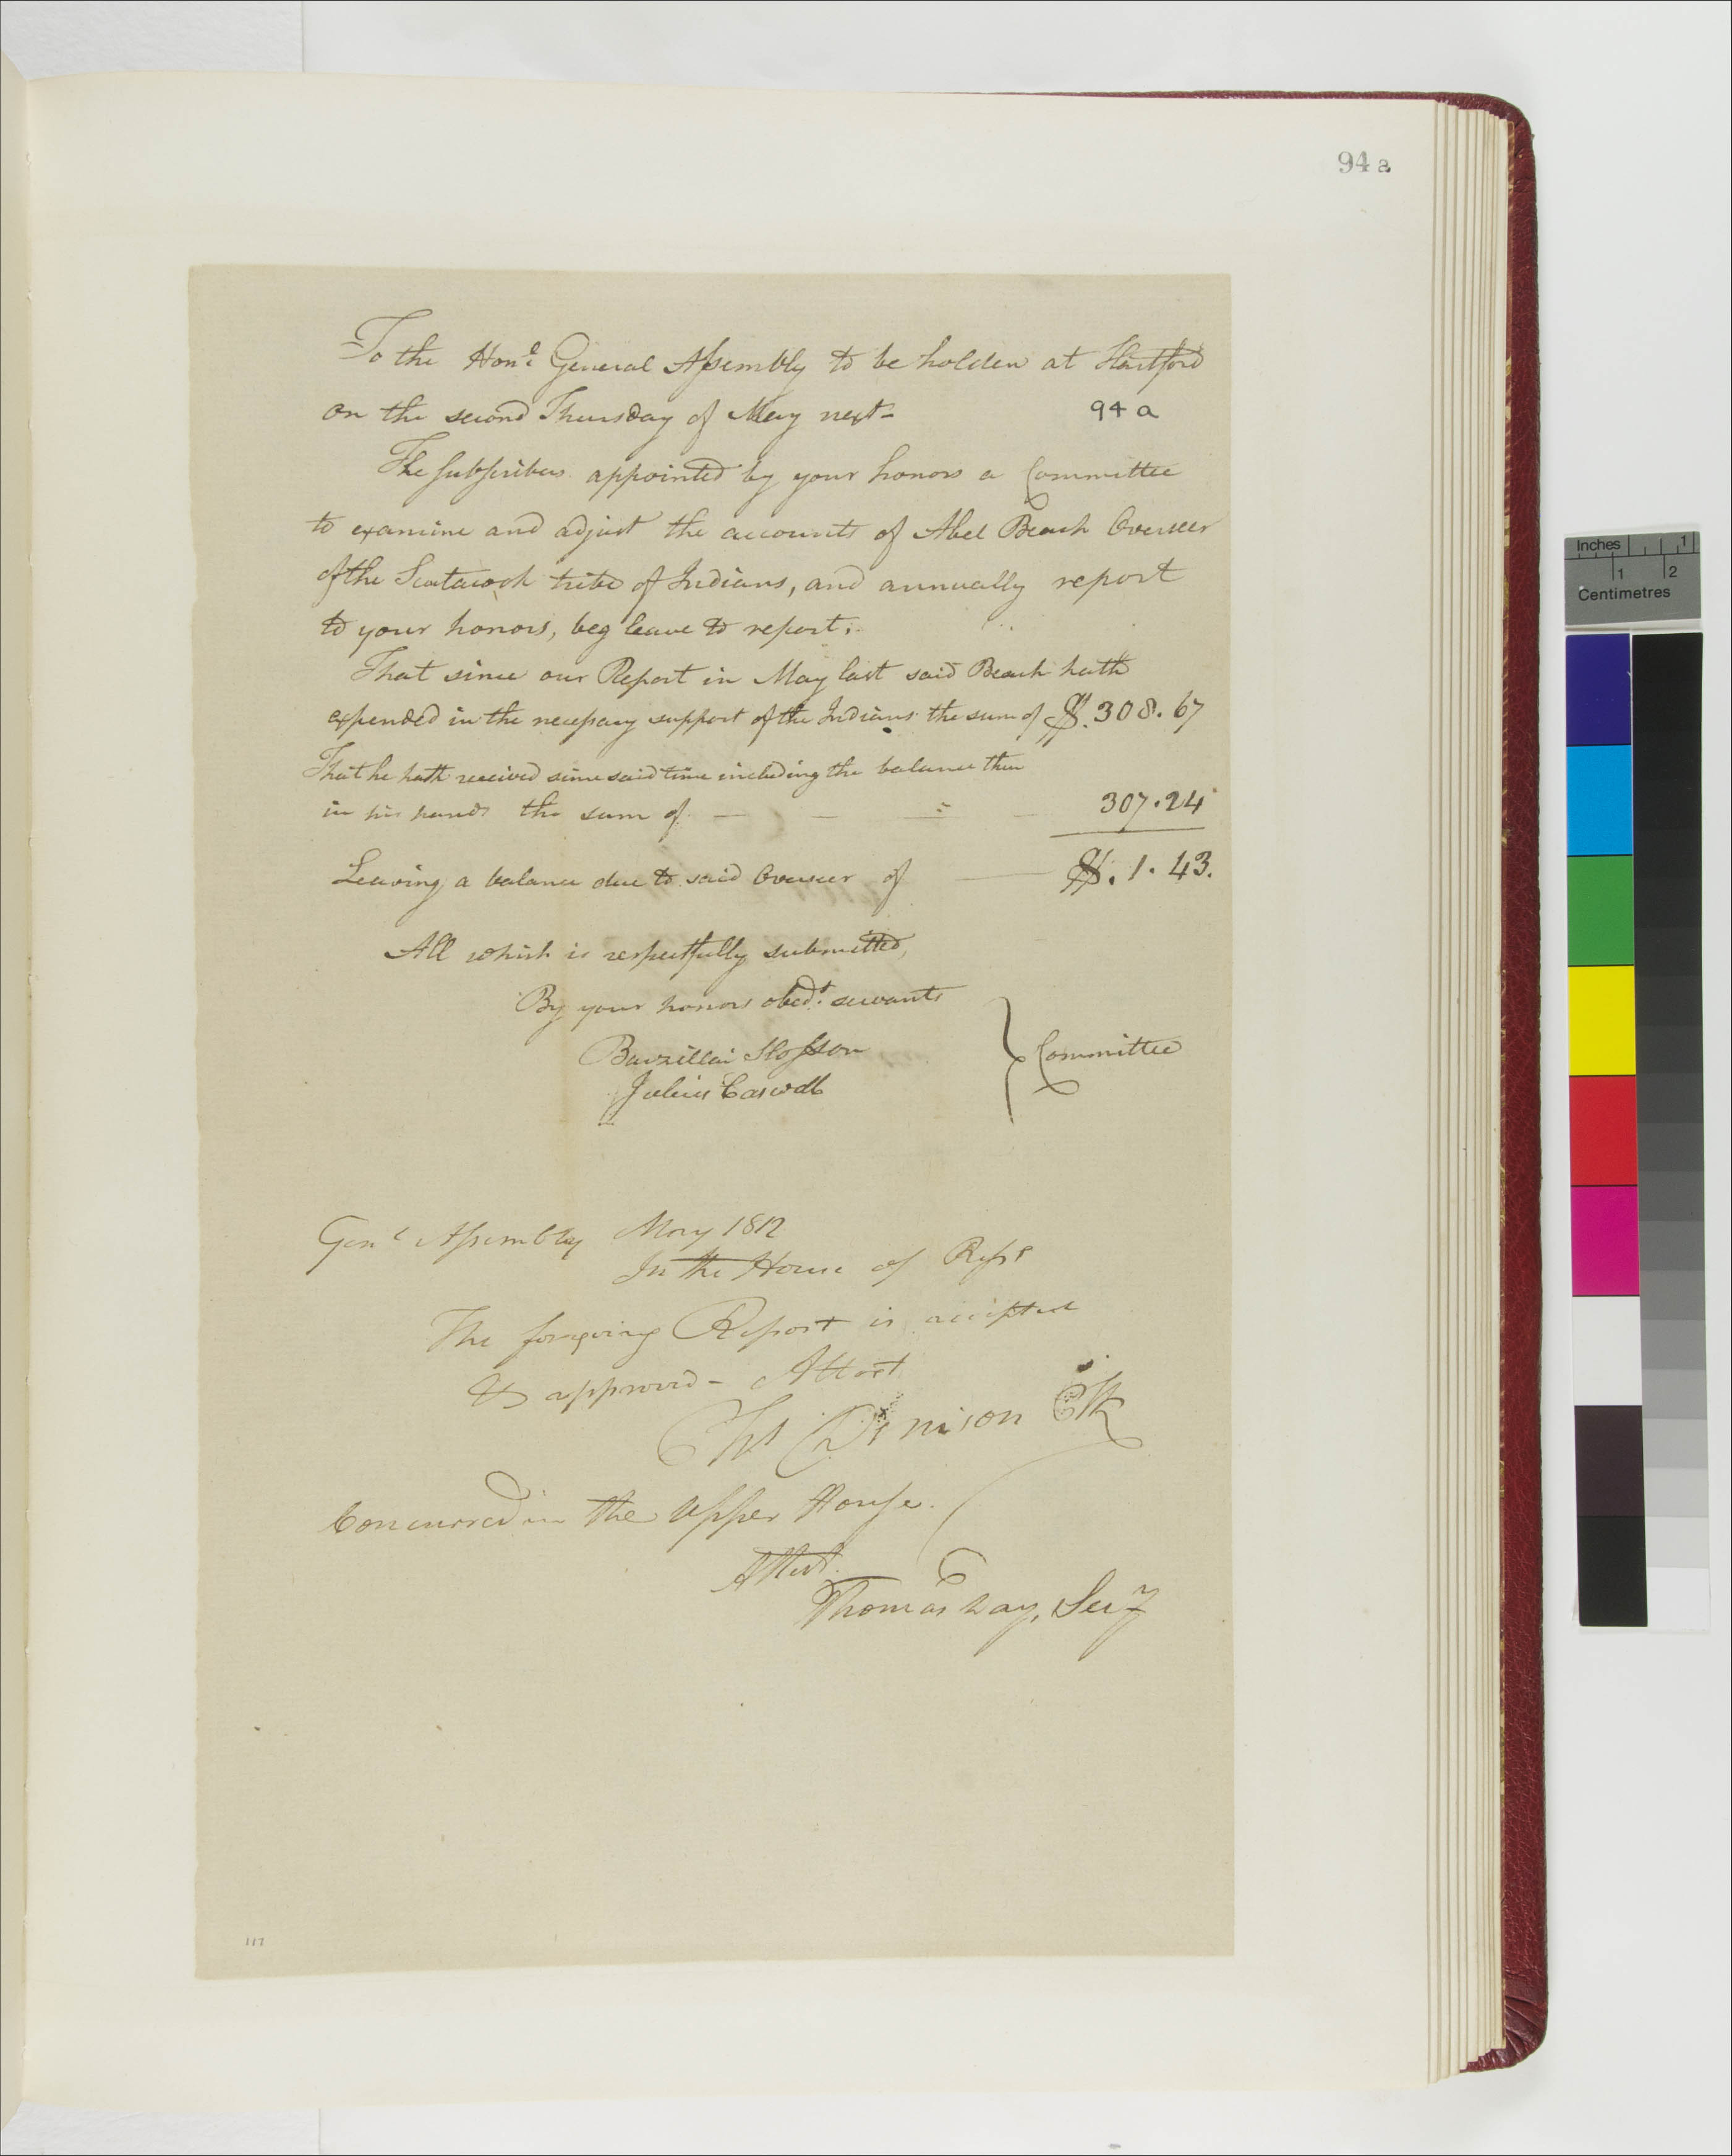 94 a
To the Hon.l General Assembly to be holden at Hartford
on the second Thursday of May next-
94 a
The subscribers appointed by your honors a Committee
to examine and adjust the accounts of Abel Beach Overseer
of the Scatacook tribe of Indians, and annually report
to your honors, beg leave to report:
That since our Report in May last said Beach hath
expended in the necessary support of the Indians the sum of $.308.67
That he hath received since said time including the balance then
in his hands the sum of - - - - 307.24
Leaving a balance due to said Overseer of - $.1.43.
All which is respectfully submitted,
By your honors obed.t servants
Barzillai Slosson
Julius Caswell
} Committee
Gen.l Assembly May 1812
In the House of Reps
The foregoing Report is accepted
& approved - Attest
Chs Denison Clk
Concurred in the Upper House.
Attest.
Thomas Day, Secy
117
Inches 1
1 2
Centimetres